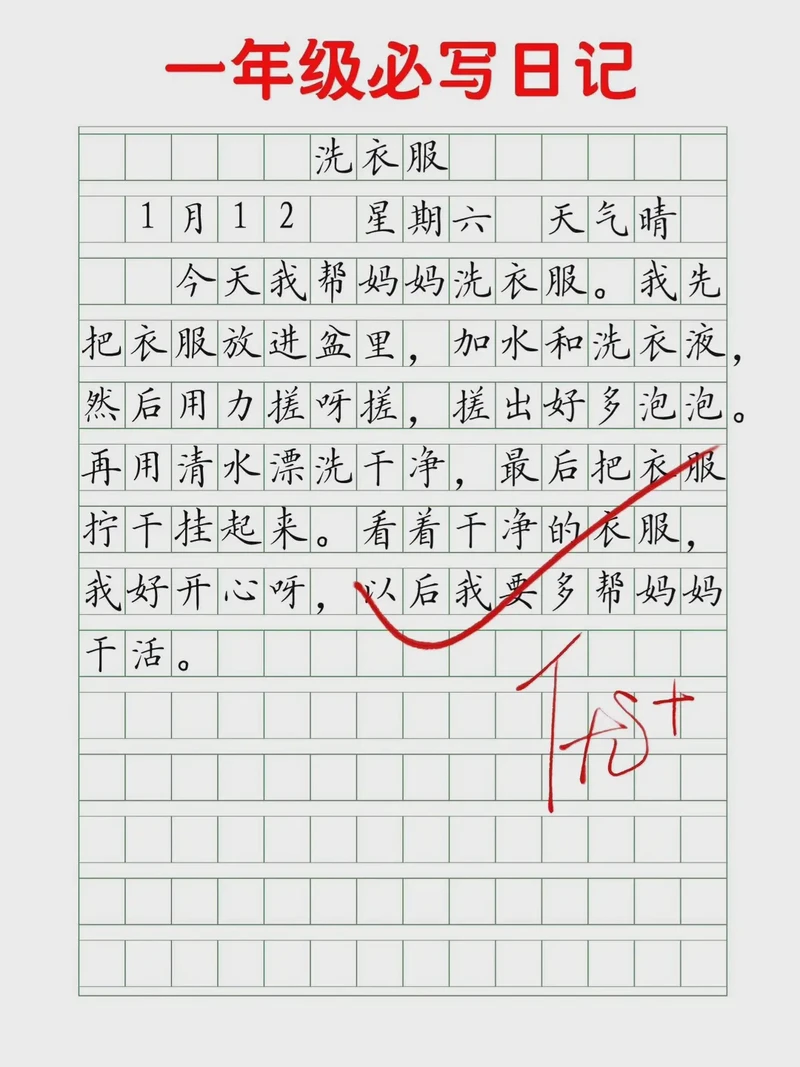 一年级必写日记
洗衣服
1月12 星期六 天气晴
今天我帮妈妈洗衣服。我先
把衣服放进盆里，加水和洗衣液，
然后用力搓呀搓，搓出好多泡泡。
再用清水漂洗干净，最后把衣服
拧干挂起来。看着干净的衣服，
我好开心呀，以后我要多帮妈妈
干活。